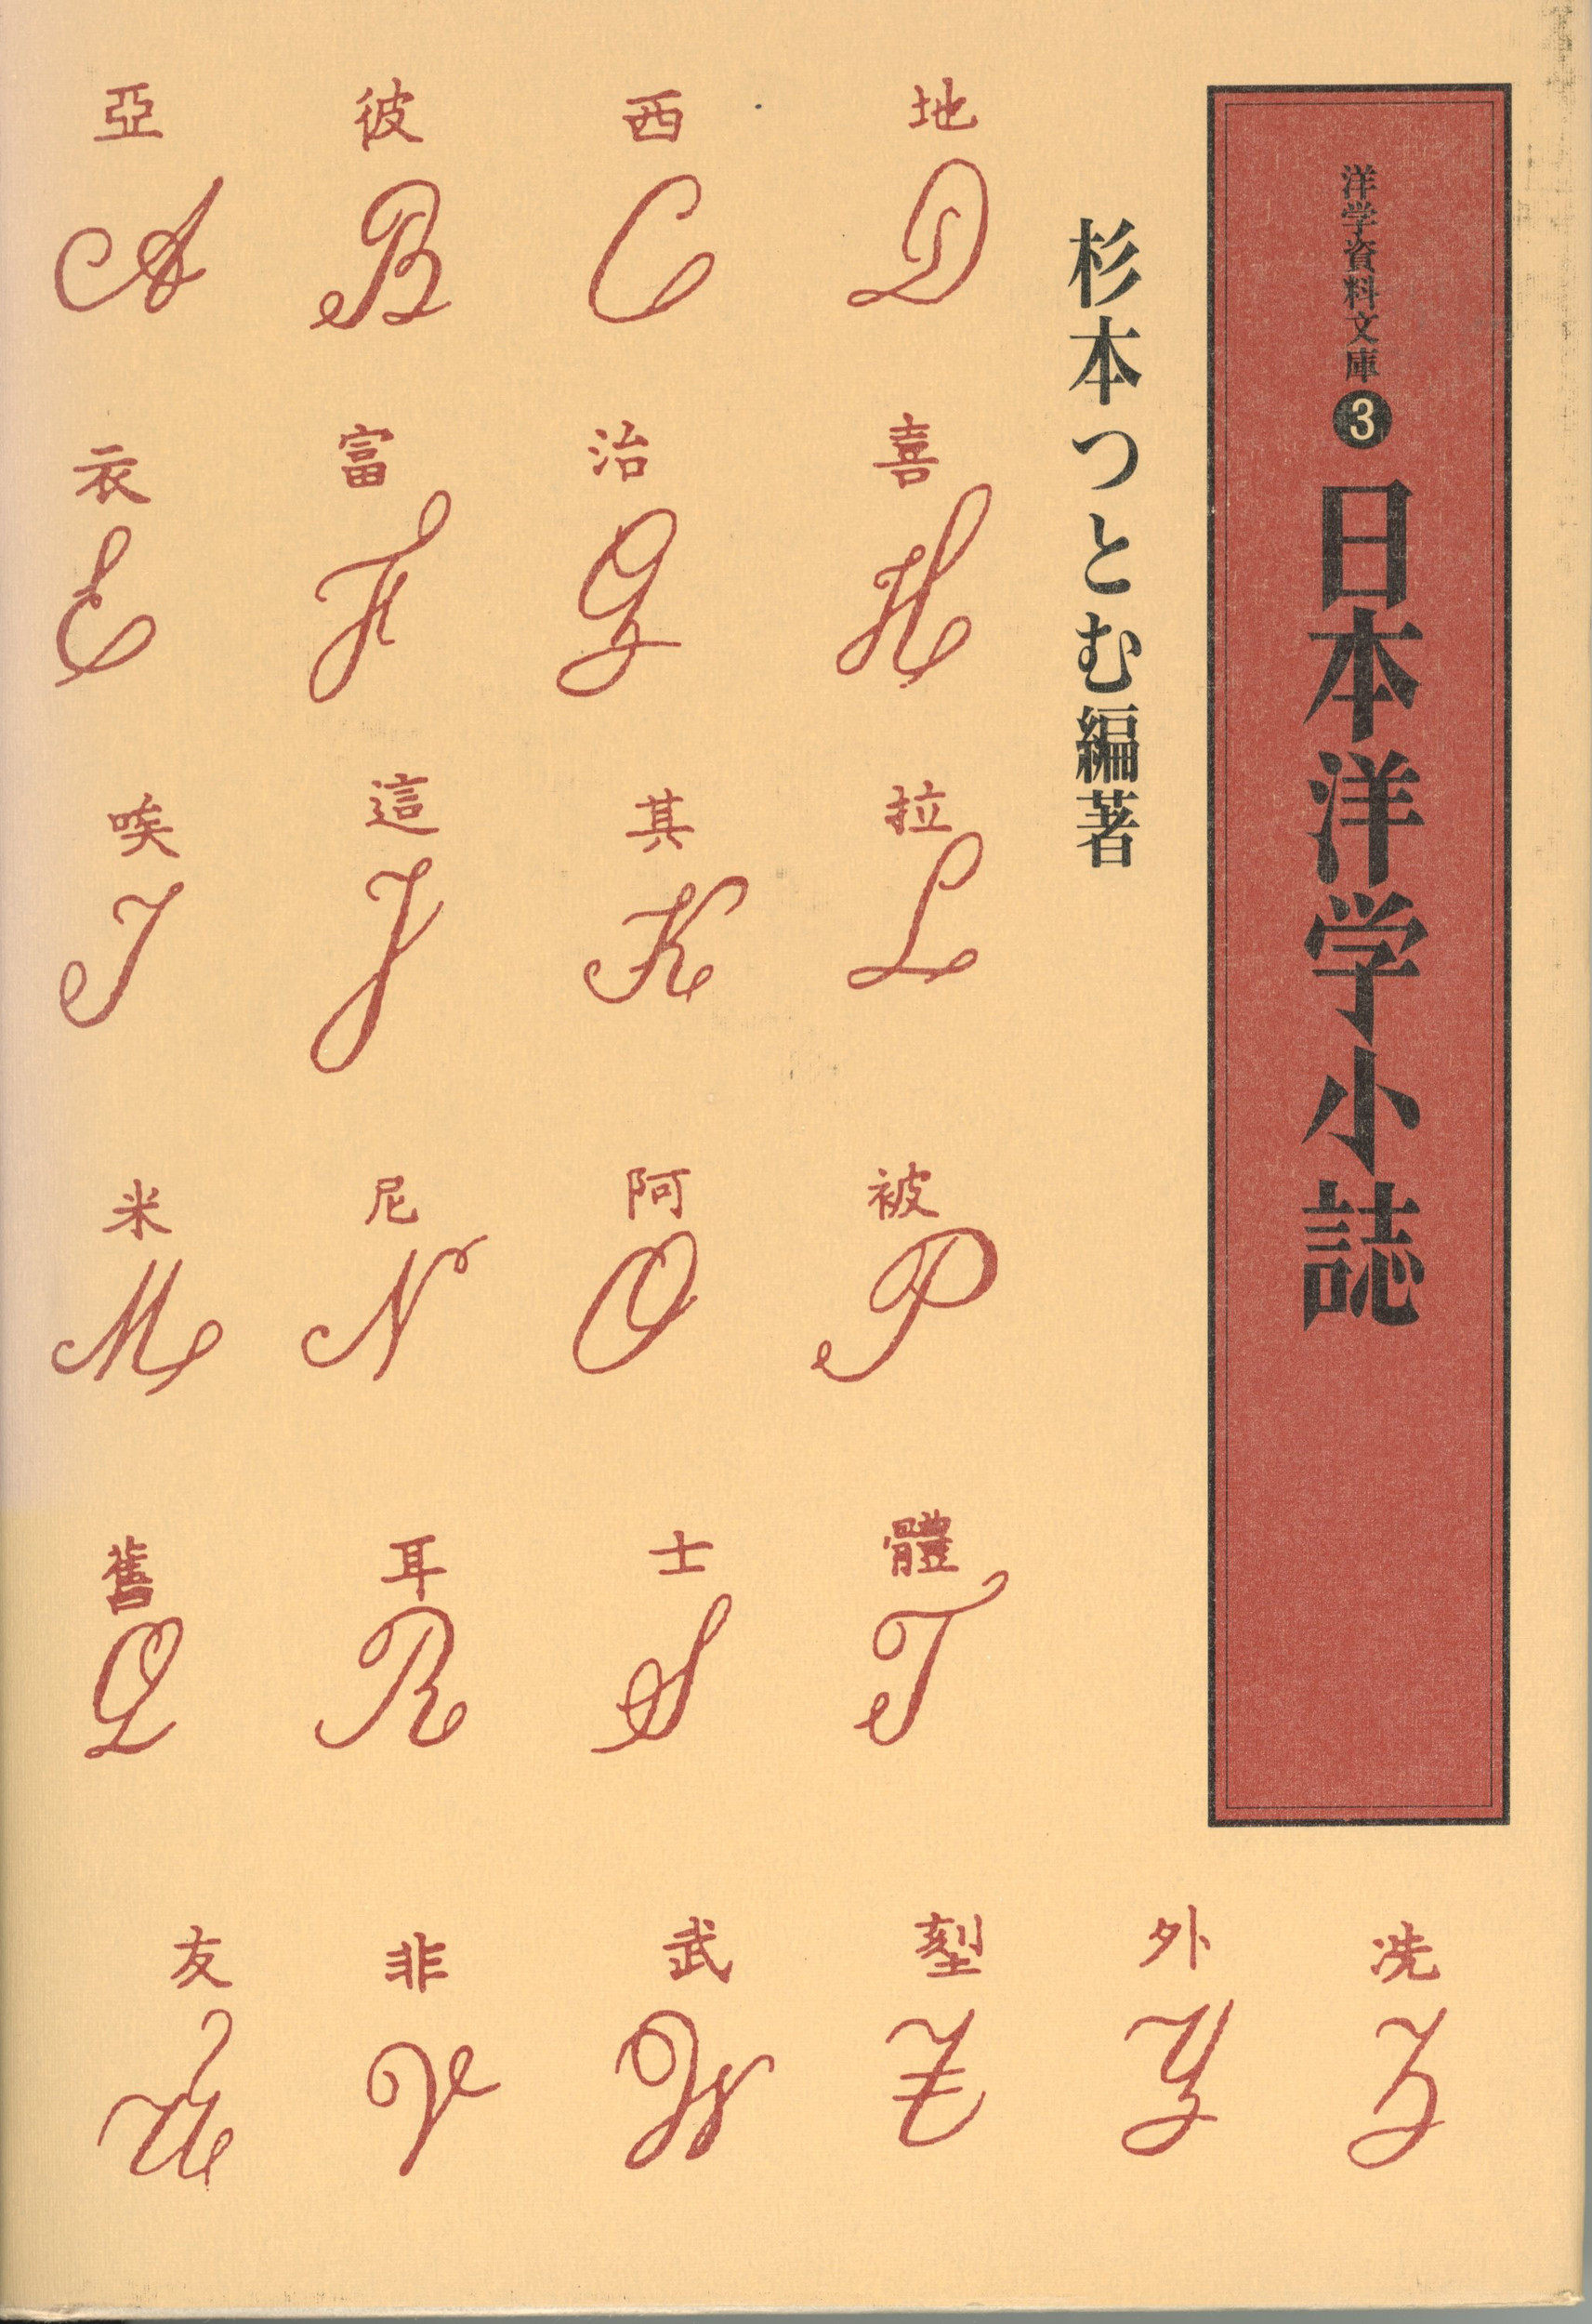 洋学資料文庫3
日本洋学小誌
杉本つとむ編著
亞 彼 西 地
A B C D
衣 富 治 喜
E F G H
唉 這 其 拉
I J K L
米 尼 阿 被
M N O P
舊 耳 士 體
Q R S T
友 非 武 外 冼
U V W Y Z